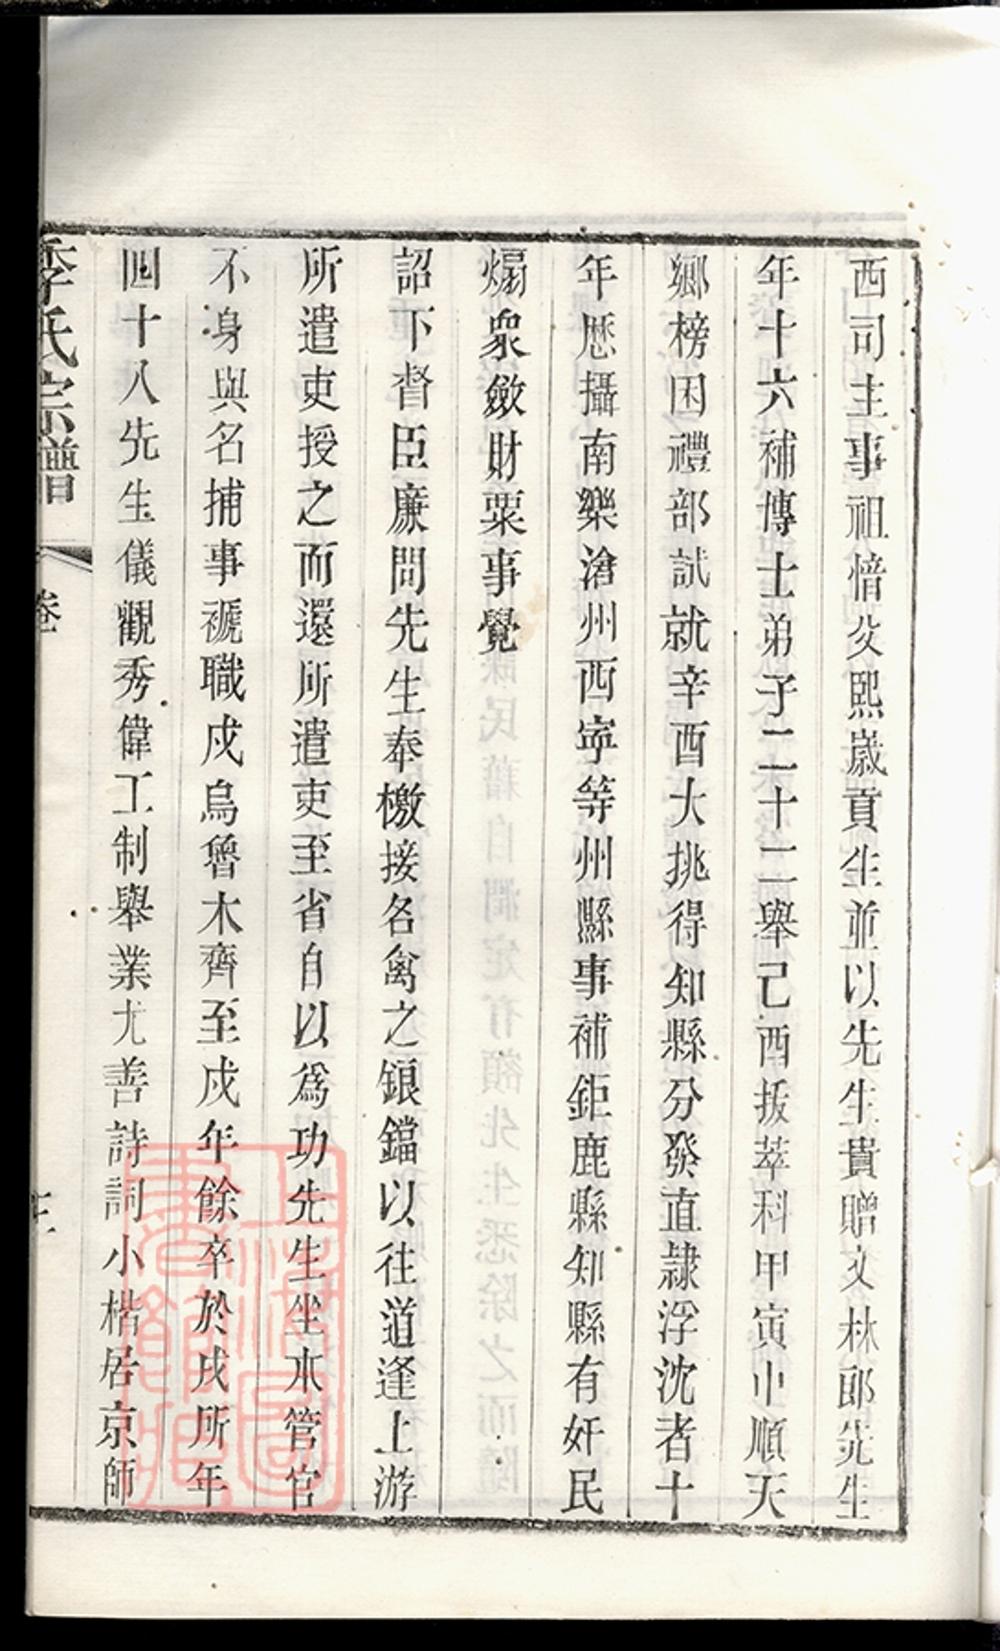 西司主事祖愔父熙歲貢生並以先生貴贈文林郎先生
年十六補博士弟子二十二舉己酉拔萃科甲寅中順天
鄉榜困禮部試就辛酉大挑得知縣分發直隸浮沈者十
年歷攝南樂滄州西寧等州縣事補鉅鹿縣知縣有奸民
煽衆斂財粟事覺
詔下督臣廉問先生奉檄接名禽之鋃鐺以往道逢上游
所遣吏授之而還所遣吏至省自以爲功先生坐本管官
不身與名捕事褫職戍烏魯木齊至戍年餘卒於戍所年
四十八先生儀觀秀偉工制舉業尤善詩詞小楷居京師
季氏宗譜
卷